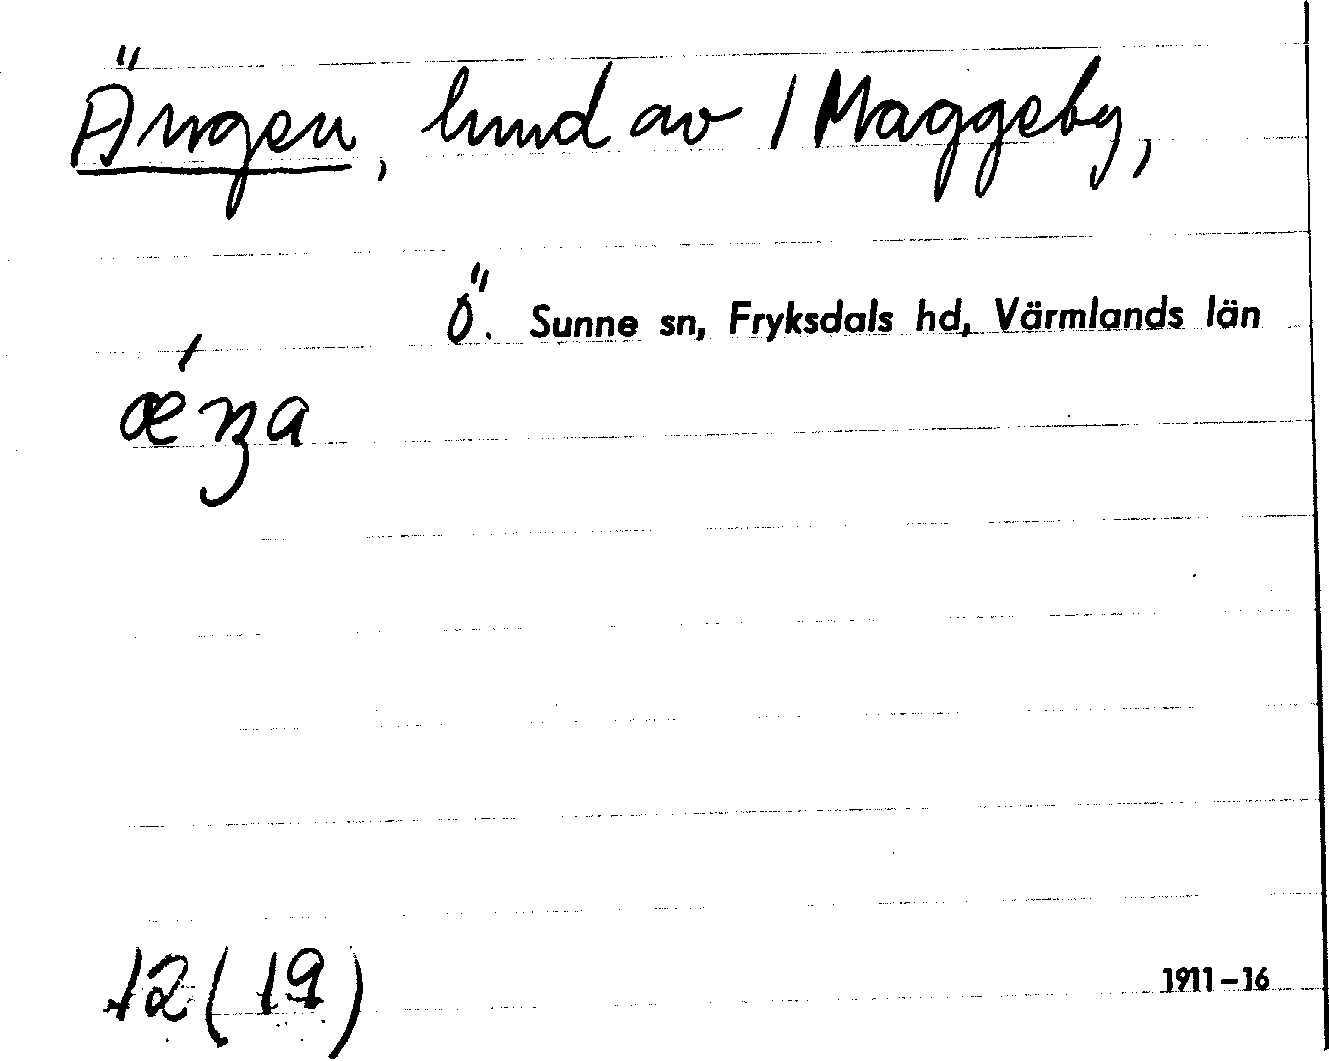 Ängen, lund av 1 Maggeby,
Ö. Sunne sn, Fryksdals hd, Värmlands län
12 (19)
1911-16